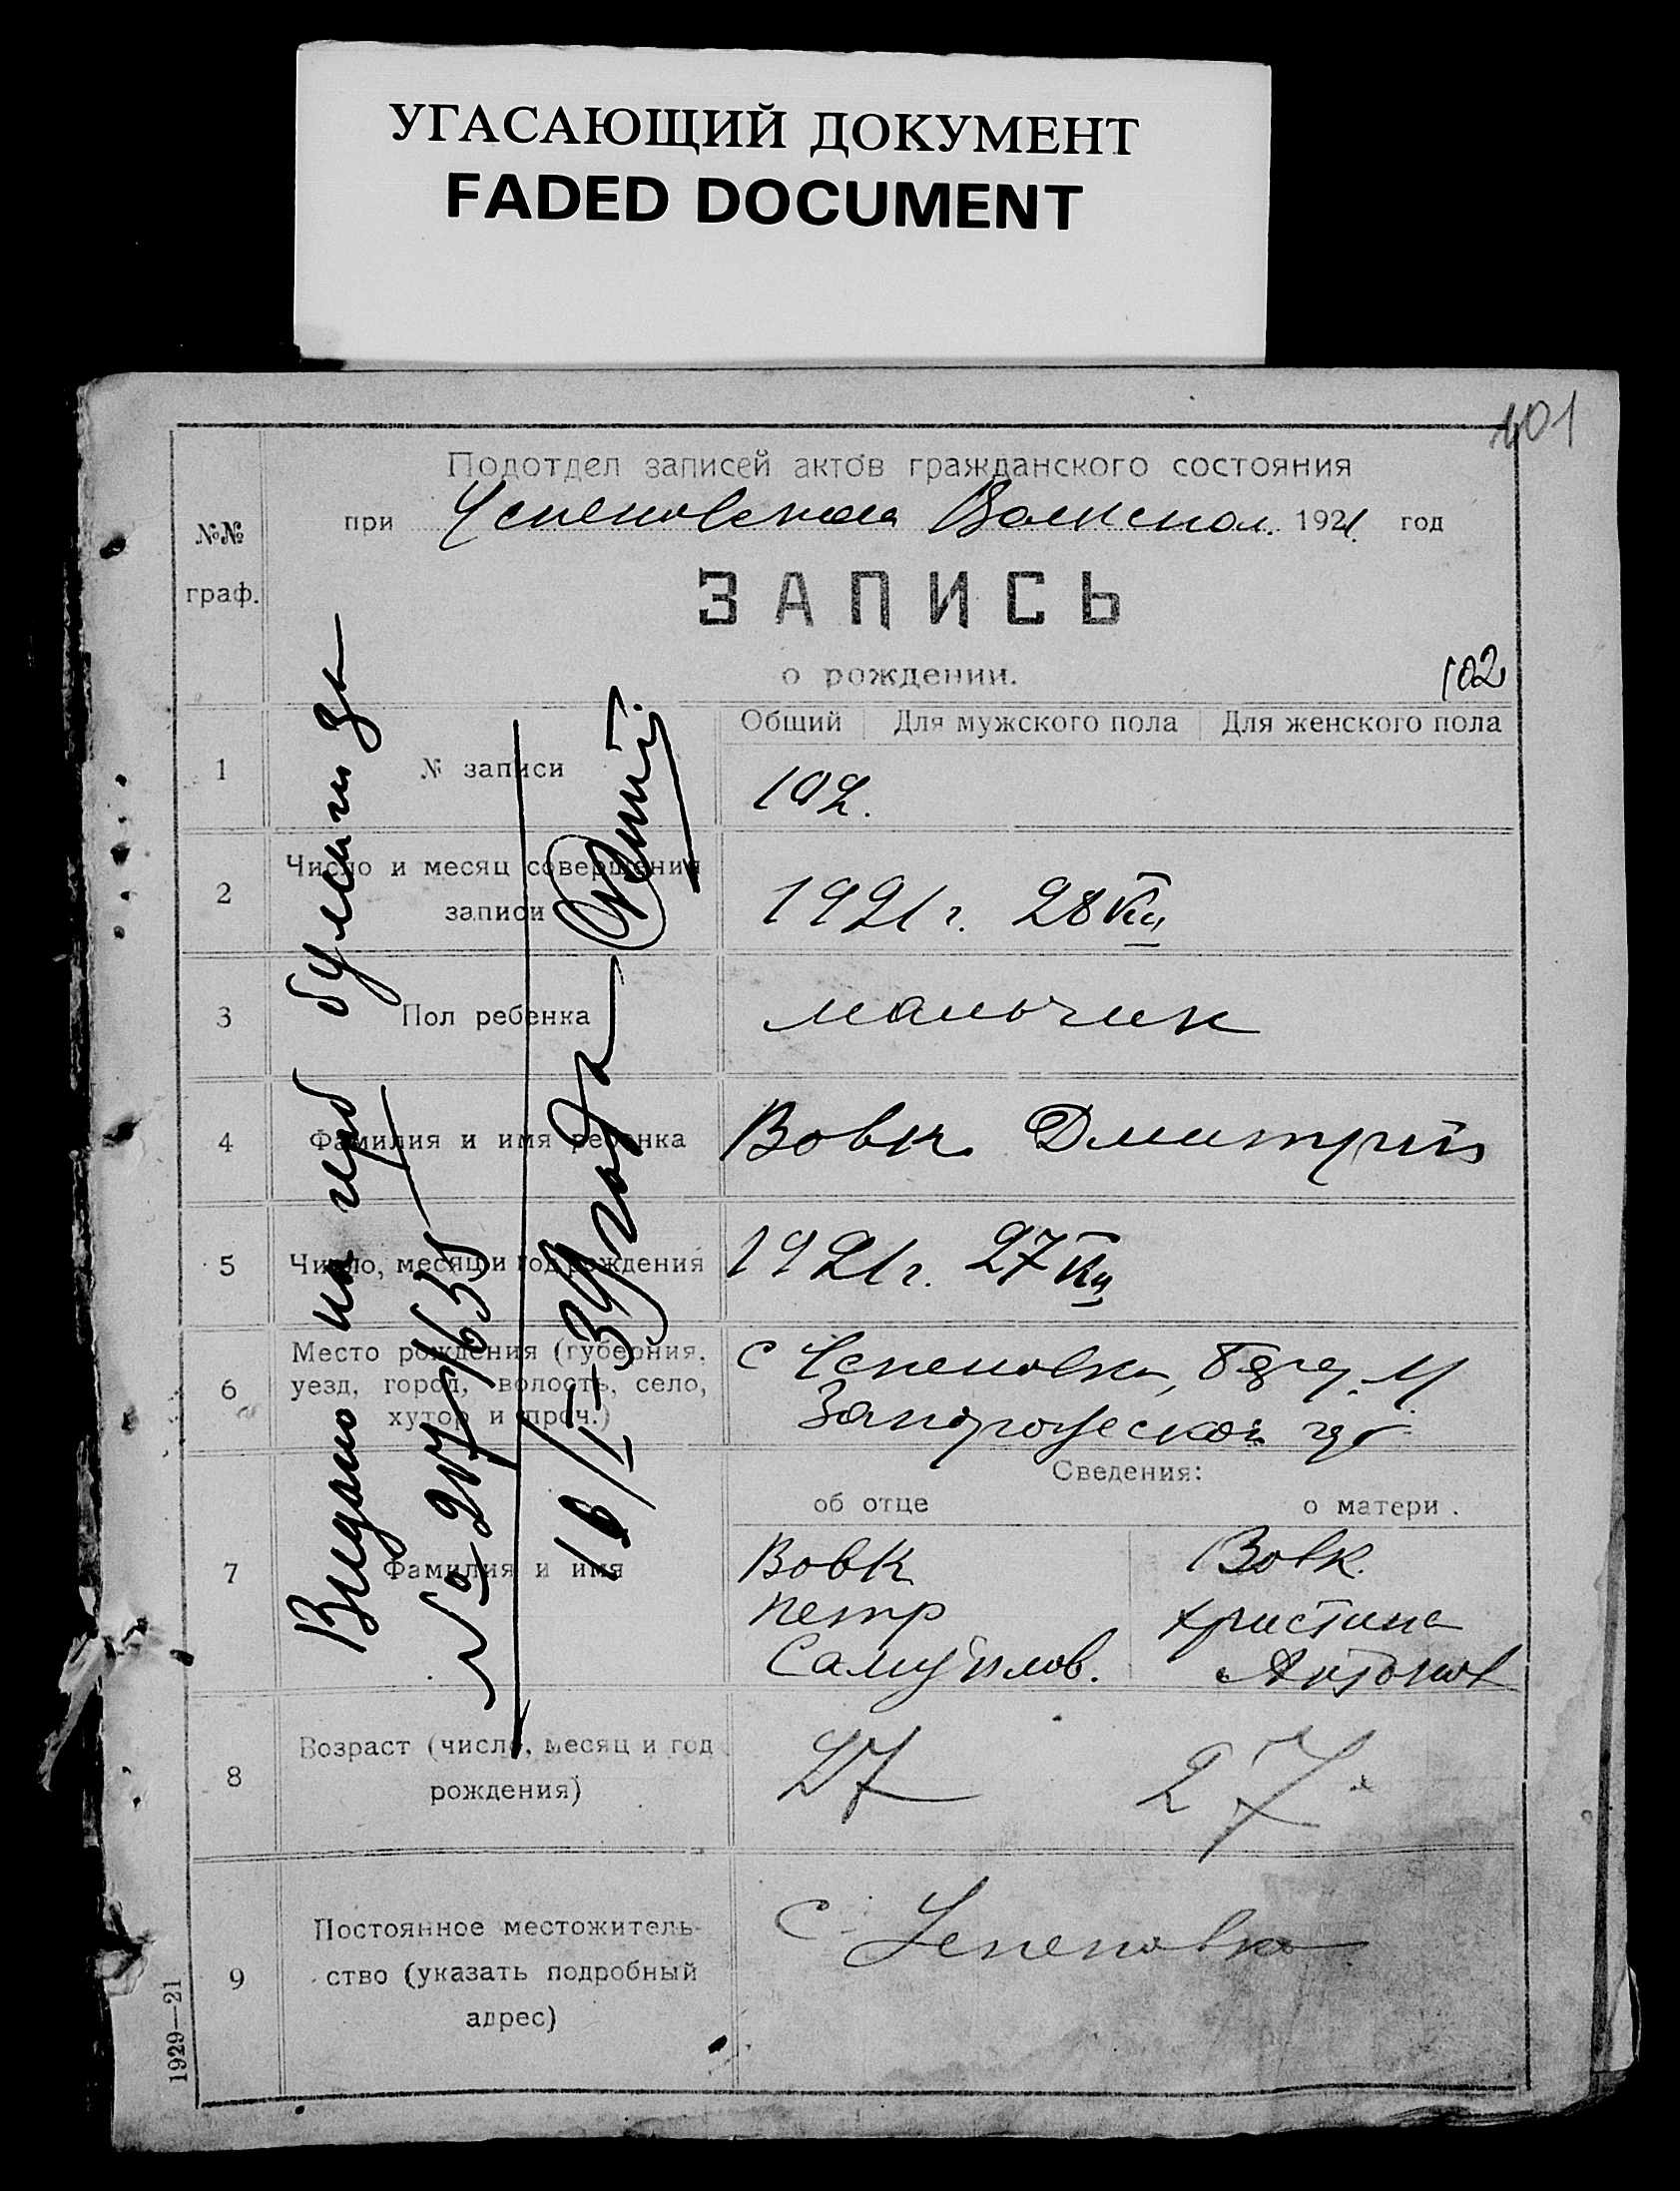 УГАСАЮЩИЙ ДОКУМЕНТ
FADED DOCUMENT
101
Подотдел записей актов гражданского состояния
при Успеновском Волиспол. 1921 год
№№
граф.
ЗАПИСЬ
о рождении.
102
Общий Для мужского пола Для женского пола
1 № записи 102.
2 Число и месяц совершения
записи 1921 г. 28
3 Пол ребенка мальчик
4 Фамилия и имя ребенка Вовк Дмитрий
5 Число, месяц и год рождения 1921 г. 27
6 Место рождения (губерния,
уезд, город, волость, село,
хутор и проч.)
с Успеновка,
Запорожеской губ
Сведения:
об отце о матери.
7 Фамилия и имя
Вовк Вовк.
Петр Христина
Самуилов. Антонов
8 Возраст (число, месяц и год
рождения)
27 27
9 Постоянное местожитель-
ство (указать подробный
адрес)
с Успеновка
1929—21
Видано на гербумазі
№
года